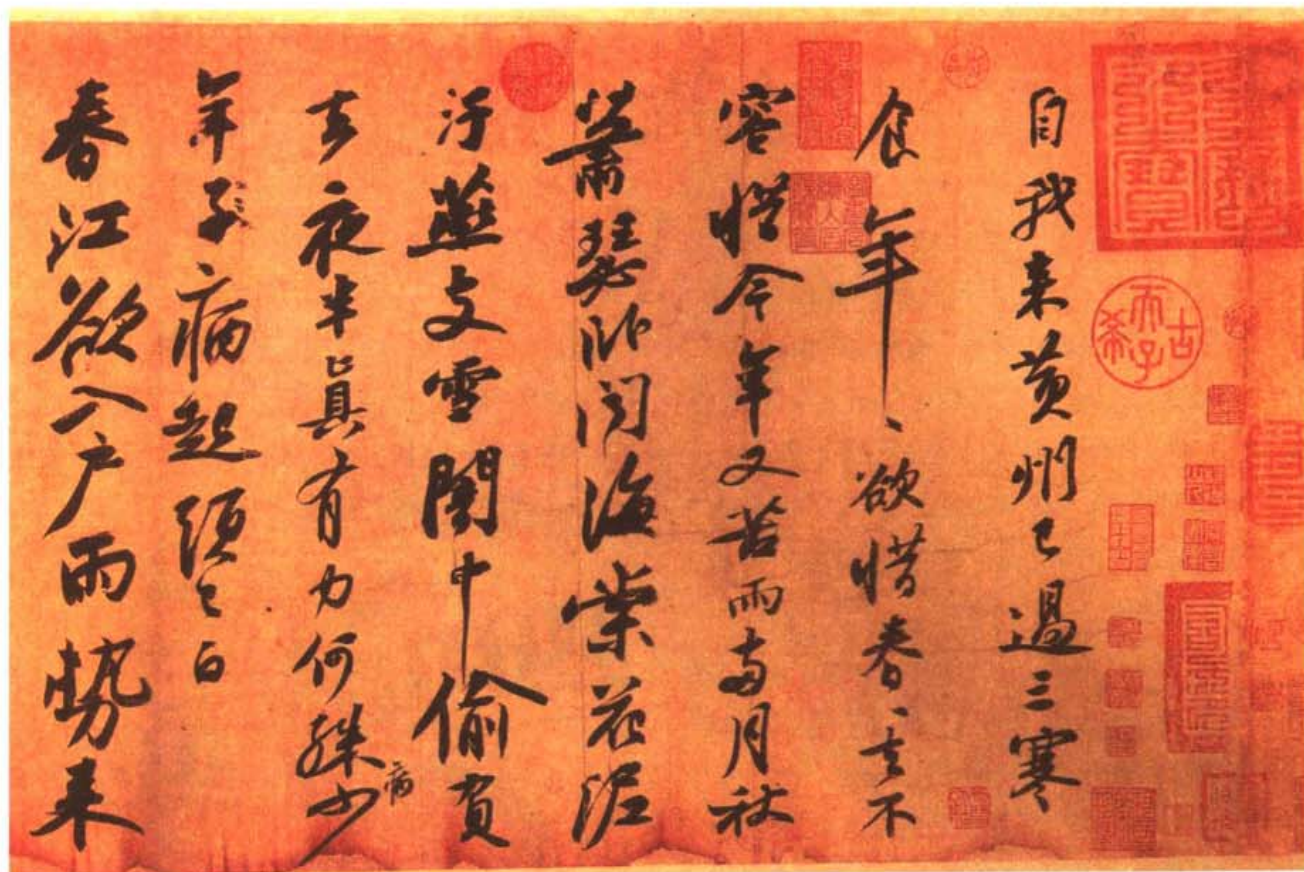 自我来黄州已過三寒
食年、欲惜春、去不
容惜今年又苦雨兩月秋
蕭瑟卧聞海棠花泥
汙燕支雪闇中偷負
去夜半真有力何殊少病
年子病起頭已白
春江欲入户雨勢来
古希天子